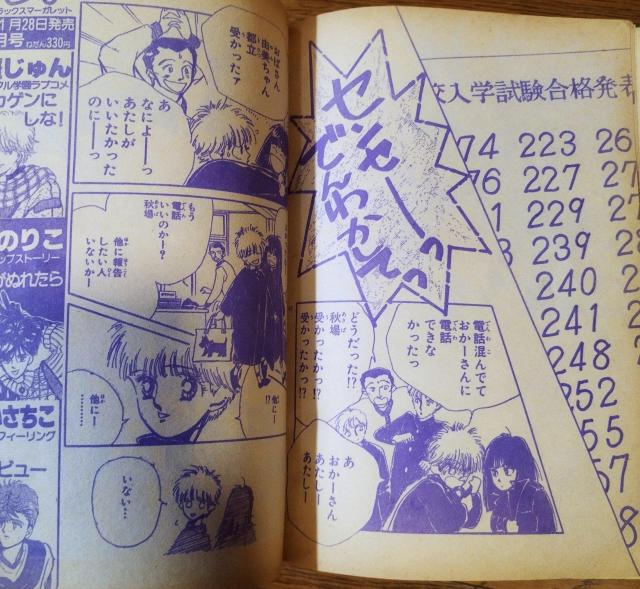 校入学試験合格発表
74 223 26
76 227 27
1 229 27
239
240
241
248
252
55
57
8
センセーーっっ
でんわかしてっっ
電話混んでて
おかーさんに
電話
できな
かったっ
どうだった!?
秋場
受かったかっ!?
受かったかっ!?
あ
おかーさん
あたしー
あたしー
おばさん
由美ちゃん
都立
受かったァ
あ
なによーーっ
あたしが
いいたかった
のにーーっ
もう
電話
いいのかー?
秋場
他に報告
したい人
いないかー
他にー
!?
他にー
………
いない…
ラックスマーガレット
1月28日発売
月号 ねだん330円
じゅん
クル学園ラブコメ
カゲンに
しな!
のりこ
ップストーリー
がぬれたら
さちこ
フィーリング
ビュー